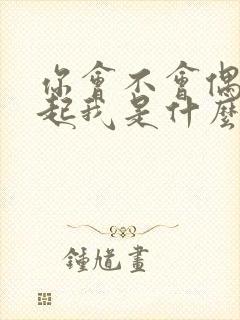 你會不會偶
起我是什麼
鍾馗畫